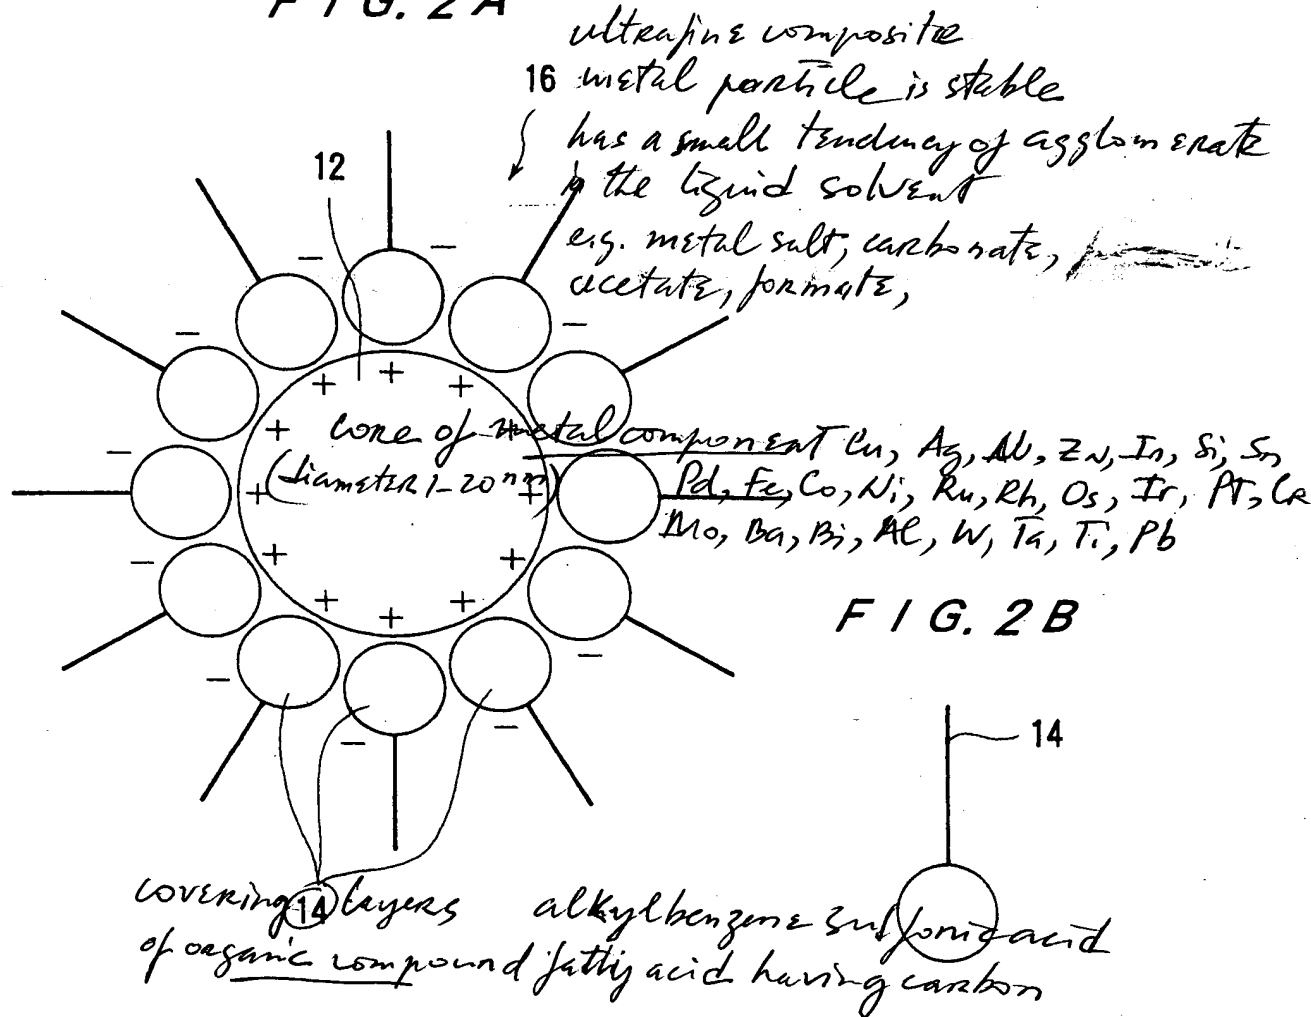 FIG. 2A
ultrafine composite
16 metal particle is stable
has a small tendency of agglomerate
12
in the liquid solvent
e.g. metal salt, carbonate,
acetate, formate,
core of metal component Cu, Ag, Au, Zn, In, Si, Sn
(diameter 1-20 nm) Pd, Fe, Co, Ni, Ru, Rh, Os, Ir, PT, Cr
Mo, Ba, Bi, Al, W, Ta, Ti, Pb
FIG. 2B
14
covering 14 layers alkylbenzene sulfonic acid
of organic compound fatty acid having carbon